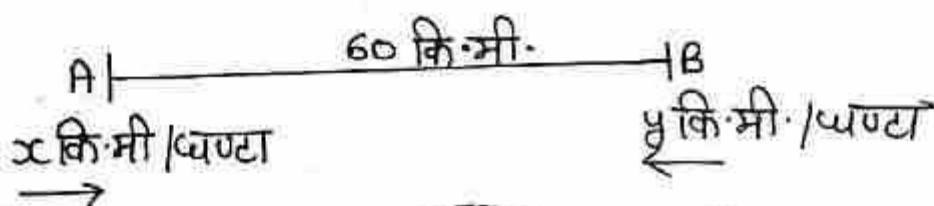 60 कि॰मी॰
A B
x कि॰मी /घण्टा y कि॰मी॰/घण्टा